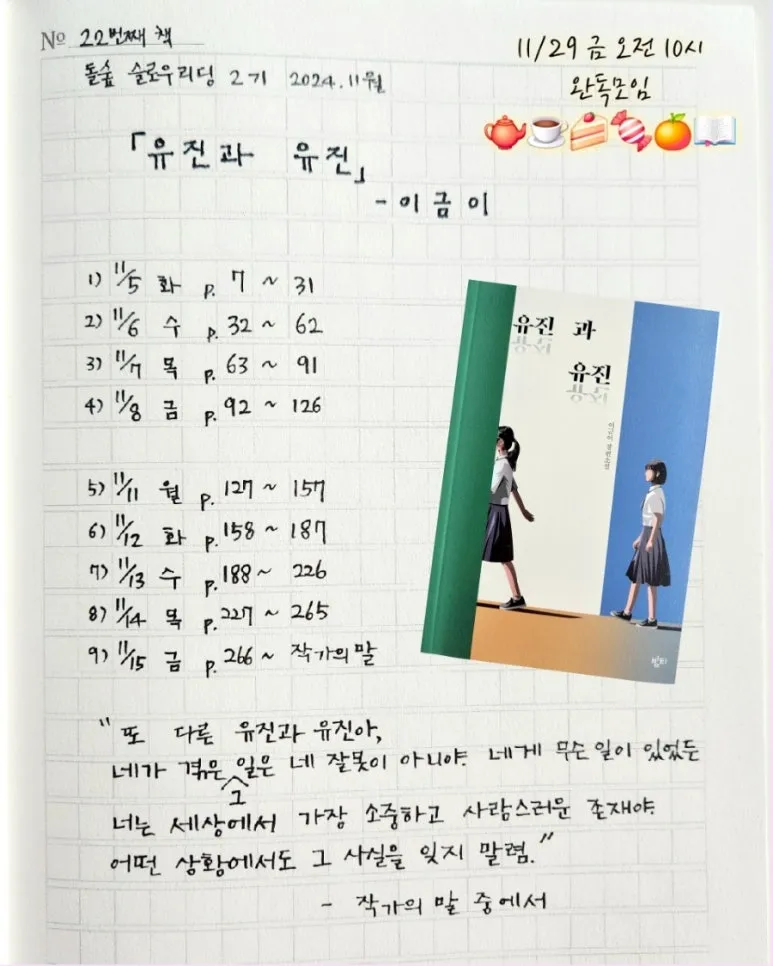 No 22번째 책
11/29 금 오전 10시
완독모임
돌숲 슬로우리딩 2기 2024.11월
「유진과 유진」
- 이금이
1) 11/5 화 p. 7 ~ 31
2) 11/6 수 p. 32 ~ 62
3) 11/7 목 p. 63 ~ 91
4) 11/8 금 p. 92 ~ 126
5) 11/11 월 p. 127 ~ 157
6) 11/12 화 p. 158 ~ 187
7) 11/13 수 p. 188 ~ 226
8) 11/14 목 p. 227 ~ 265
9) 11/15 금 p. 266 ~ 작가의 말
유진과
유진
이금이 장편소설
밤티
"또 다른 유진과 유진아,
네가 겪은 그 일은 네 잘못이 아니야. 네게 무슨 일이 있었든
너는 세상에서 가장 소중하고 사랑스러운 존재야.
어떤 상황에서도 그 사실을 잊지 말렴."
- 작가의 말 중에서